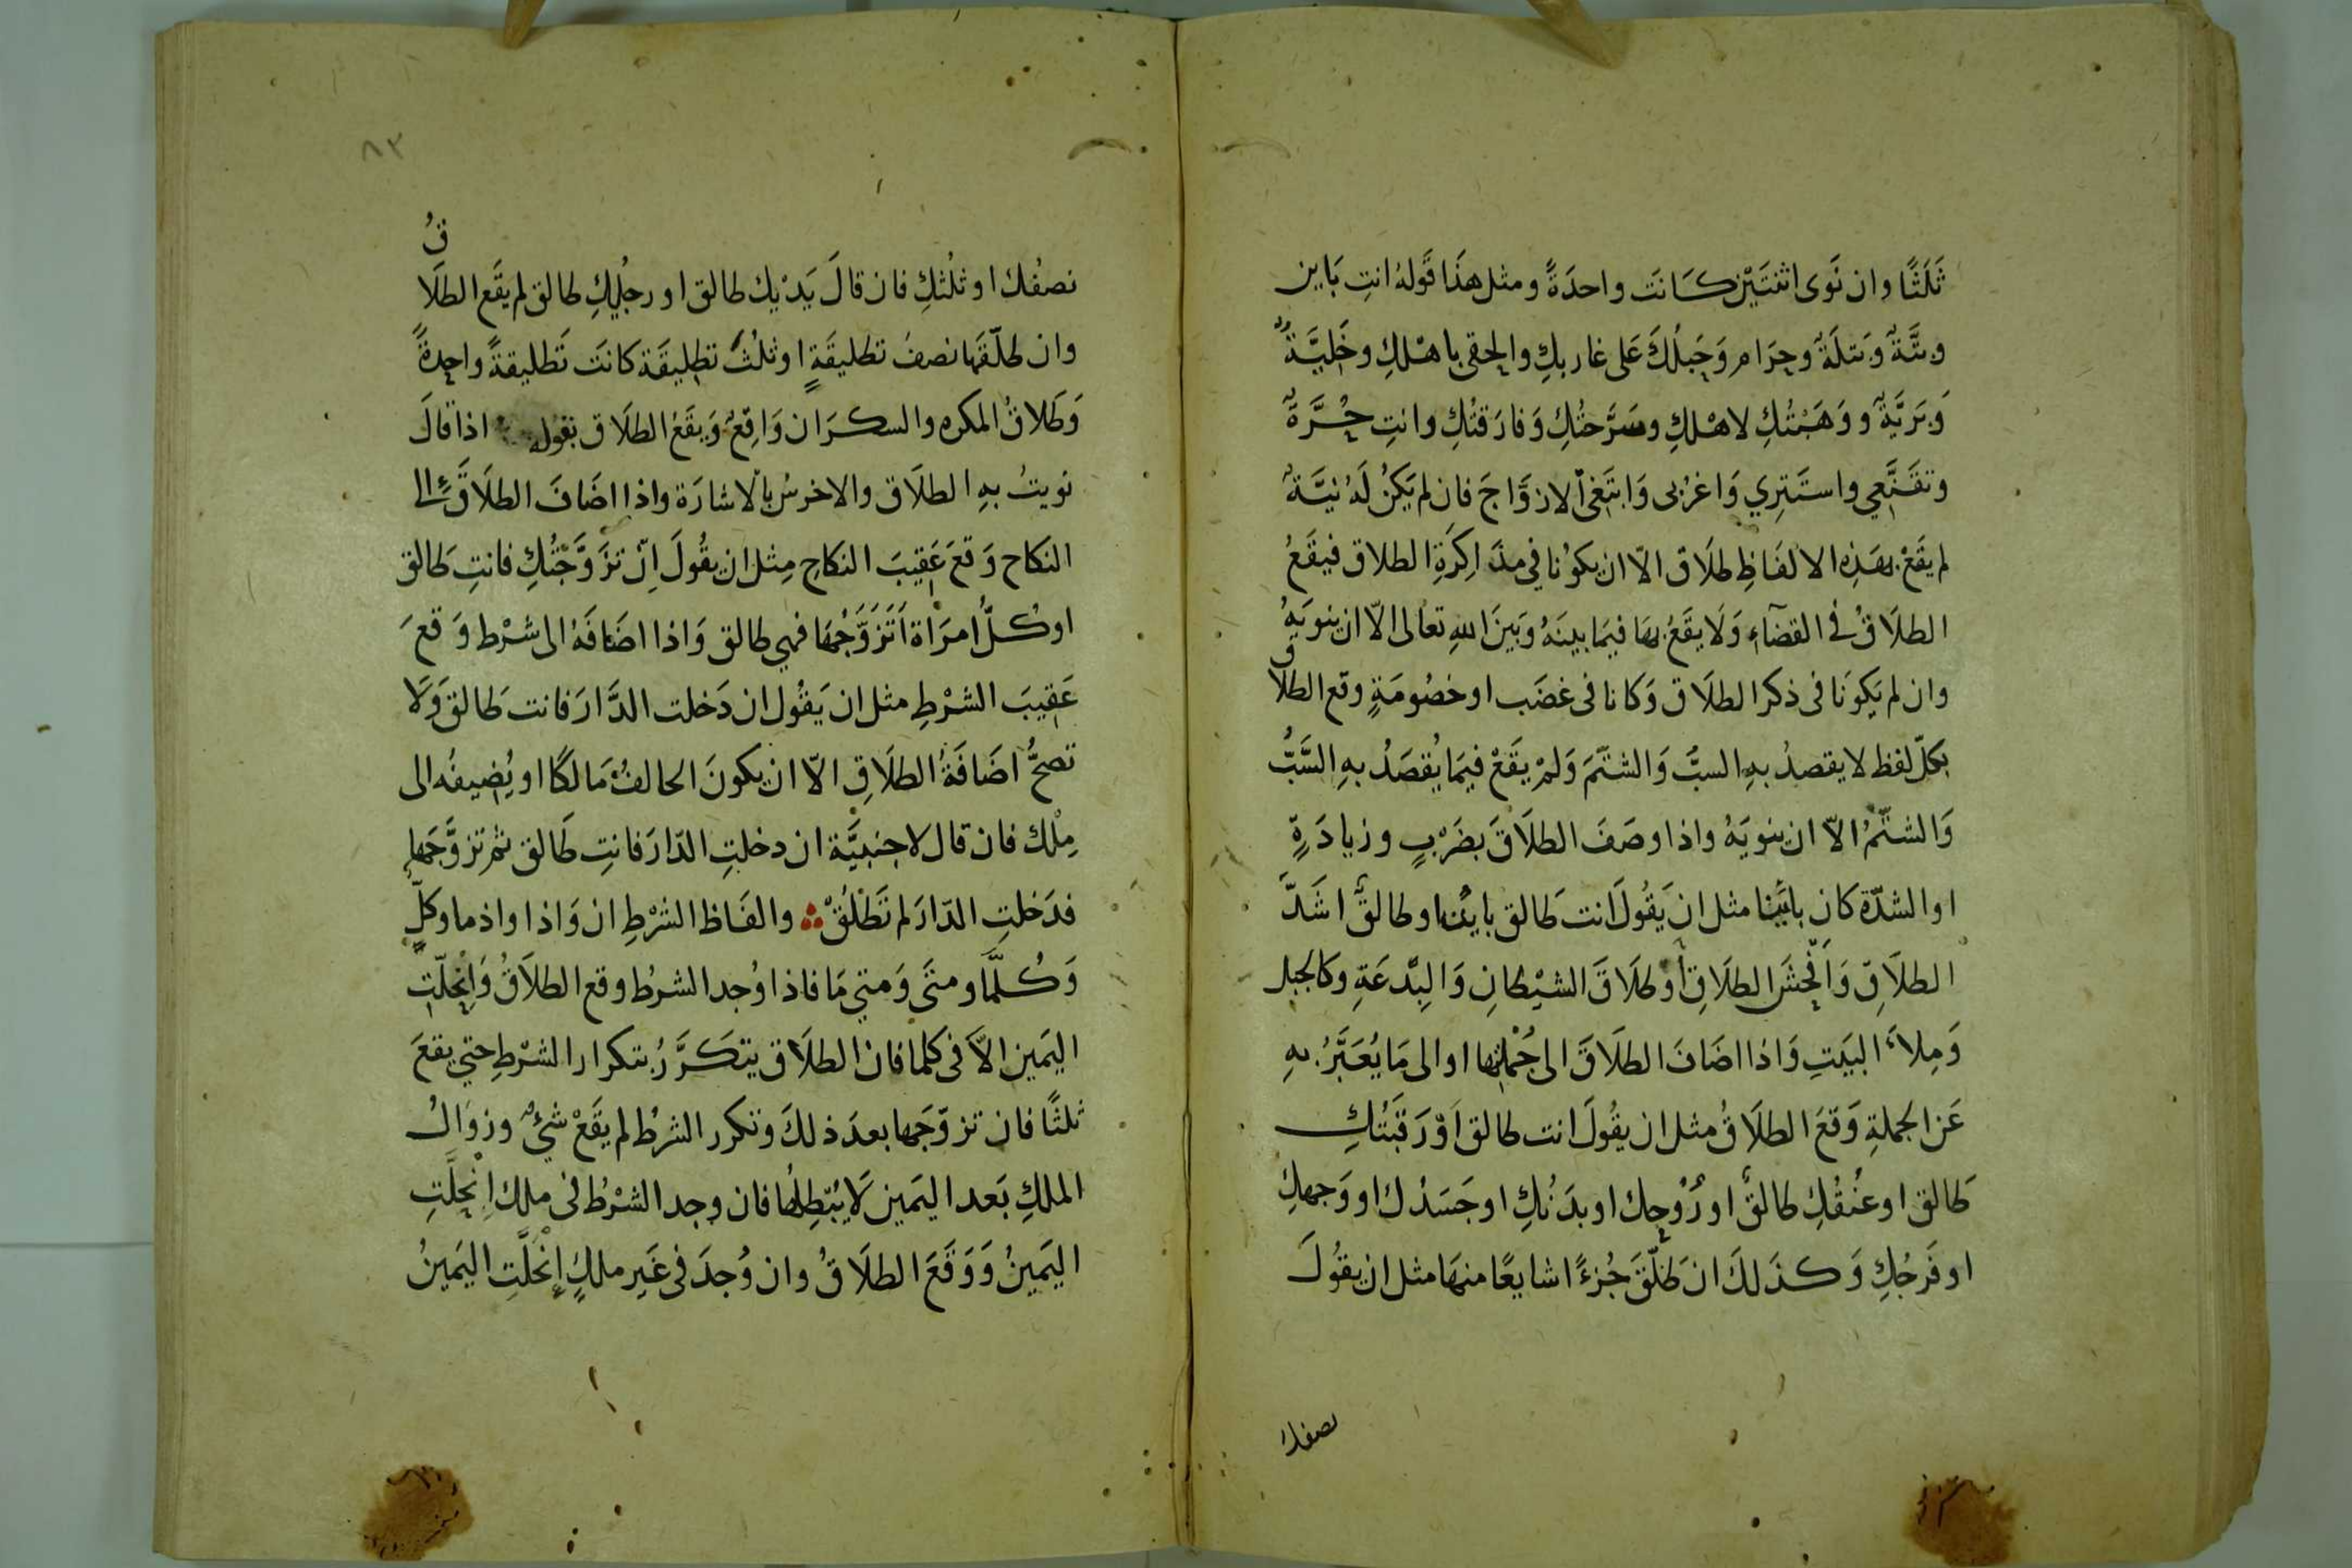 ثَلَثًا وان نَوى اثنتَيْن كَانَت واحدَةً ومثل هذَا قَولهُ انتِ بَاين
وبتَّةٌ وَبَتلَةٌ وحِرَام وَحَبلُكَ عَلى غاربكِ والحقى باهْلكِ وخَليَّةٌ
وَبَريَّةٌ ووَهَبْتُكِ لاهْلكِ وسَرَّحتُكِ وَفارَقتُكِ وانتِ حُرَّةٌ
وتقَنَّعِي واستَتِرِي وَاغرُبى وَابتَغى الازوَاجَ فان لم يَكنْ لَهُ نيَّةٌ
لم يقَعْ بهَذِه الالفَاظِ طلَاق الاّ ان يكوُنا في مذَاكِرَةِ الطلاق فيقَعُ
الطلَاقُ في القضآءِ وَلَا يقَعُ بهَا فيمَا بينَهُ وَبَينَ اللهِ تعَالى الاّ ان ينويَهُ
وان لم يَكوَنَا فى ذكر الطلَاق وَكانا فى غضَب او خصُومَةٍ وقع الطلاق
بكلّ لفظ لا يقصدُ بهِ السبَّ وَالشتَمَ وَلمْ يقَعْ فيمَا يُقصَدُ بهِ السَّبُّ
وَالشتْمُ الاّ ان ينويَهُ واذا وصَفَ الطلَاقَ بضَرْبٍ وزيادَةٍ
او الشدّة كان بائنا مثل ان يَقُولَ انت طَالق بائن او طالقٌ اشَدَّ
الطلَاقِ وَافْحَشَ الطلَاقِ أو طلَاقَ الشيْطانِ وَالبِدْعَةِ وكالجبل
وَمِلاَءَ البيَتِ وَاذا اضَافَ الطلَاقَ الى جُمْلتِها او الى مَا يُعَبَّرُ بهِ
عَن الجملةِ وَقعَ الطلَاقُ مثل ان يقُولَ انت طالق اَوْ رَقَبَتُكِ
طَالق او عُنُقُكِ طالقٌ او رُوْحِك او بدَنُكِ او جَسَدُك او وَجهكِ
او فَرجُكِ وَكذَلكَ ان طَلّقَ جُزءًا شايعًا منهَا مثل ان يقُولَ
نصفك
٨٣
نصفُك او ثلُثكِ فان قالَ يَدْيك طالق او رجُليكِ طالق لم يقَع الطلَاقُ
وان طلّقَها نصفَ تطليقَةٍ او ثلُثَ تطليقَة كانَت تَطليقةً واحِدةً
وَطَلاقُ المكره والسكرَان وَاقِعٌ وَيقَعُ الطلَاق بقوله اذا قالَ
نويتُ بهِ الطلَاق والاخرسُ بالاشارَة واذا اضَافَ الطلَاقَ الى
النكاح وَقعَ عَقِيبَ النكاحِ مِثل ان يقُولَ اِنْ تزَوَّجْتُكِ فانتِ طَالق
او كُلُّ امرَاة اَتَزَوَّجُهَا فهي طالق وَاذا اضَافَهُ الى شرْط وَقعَ
عَقِيبَ الشرْطِ مثل ان يَقُول ان دَخلت الدَّارَ فانت طَالق وَلَا
تصحُّ اضَافَةُ الطلَاقِ الاّ ان يكونَ الحالفُ مَالكًا او يُضِيفُه الى
مِلْك فان قال لاجنبيَّة ان دخلتِ الدّارَ فانتِ طَالق ثم تزوَّجَها
فدَخلتِ الدّارَ لم تَطْلُقْ ؞ والفَاظ الشرْطِ ان وَاذا واذما وكلّ
وَكُلّما ومتَى وَمتي مَا فاذا وُجد الشرطُ وقع الطلَاقُ وَانْحِلّتِ
اليَمين الاّ فى كلما فان الطلَاق يتكَرَّرُ بتكرار الشرْطِ حتي يقعَ
ثلثًا فان تزوّجَها بعدَ ذلكَ وتكرر الشرطُ لم يقَعْ شئٌ وزوَالُ
الملكِ بَعد اليَمين لَا يُبْطِلُها فان وجد الشرْطُ فى ملك اِنْحِلَّتِ
اليَمينُ وَوَقَعَ الطلَاقُ وان وُجدَ فى غَيرِ ملكٍ اِنْحَلَّتِ اليَمينُ